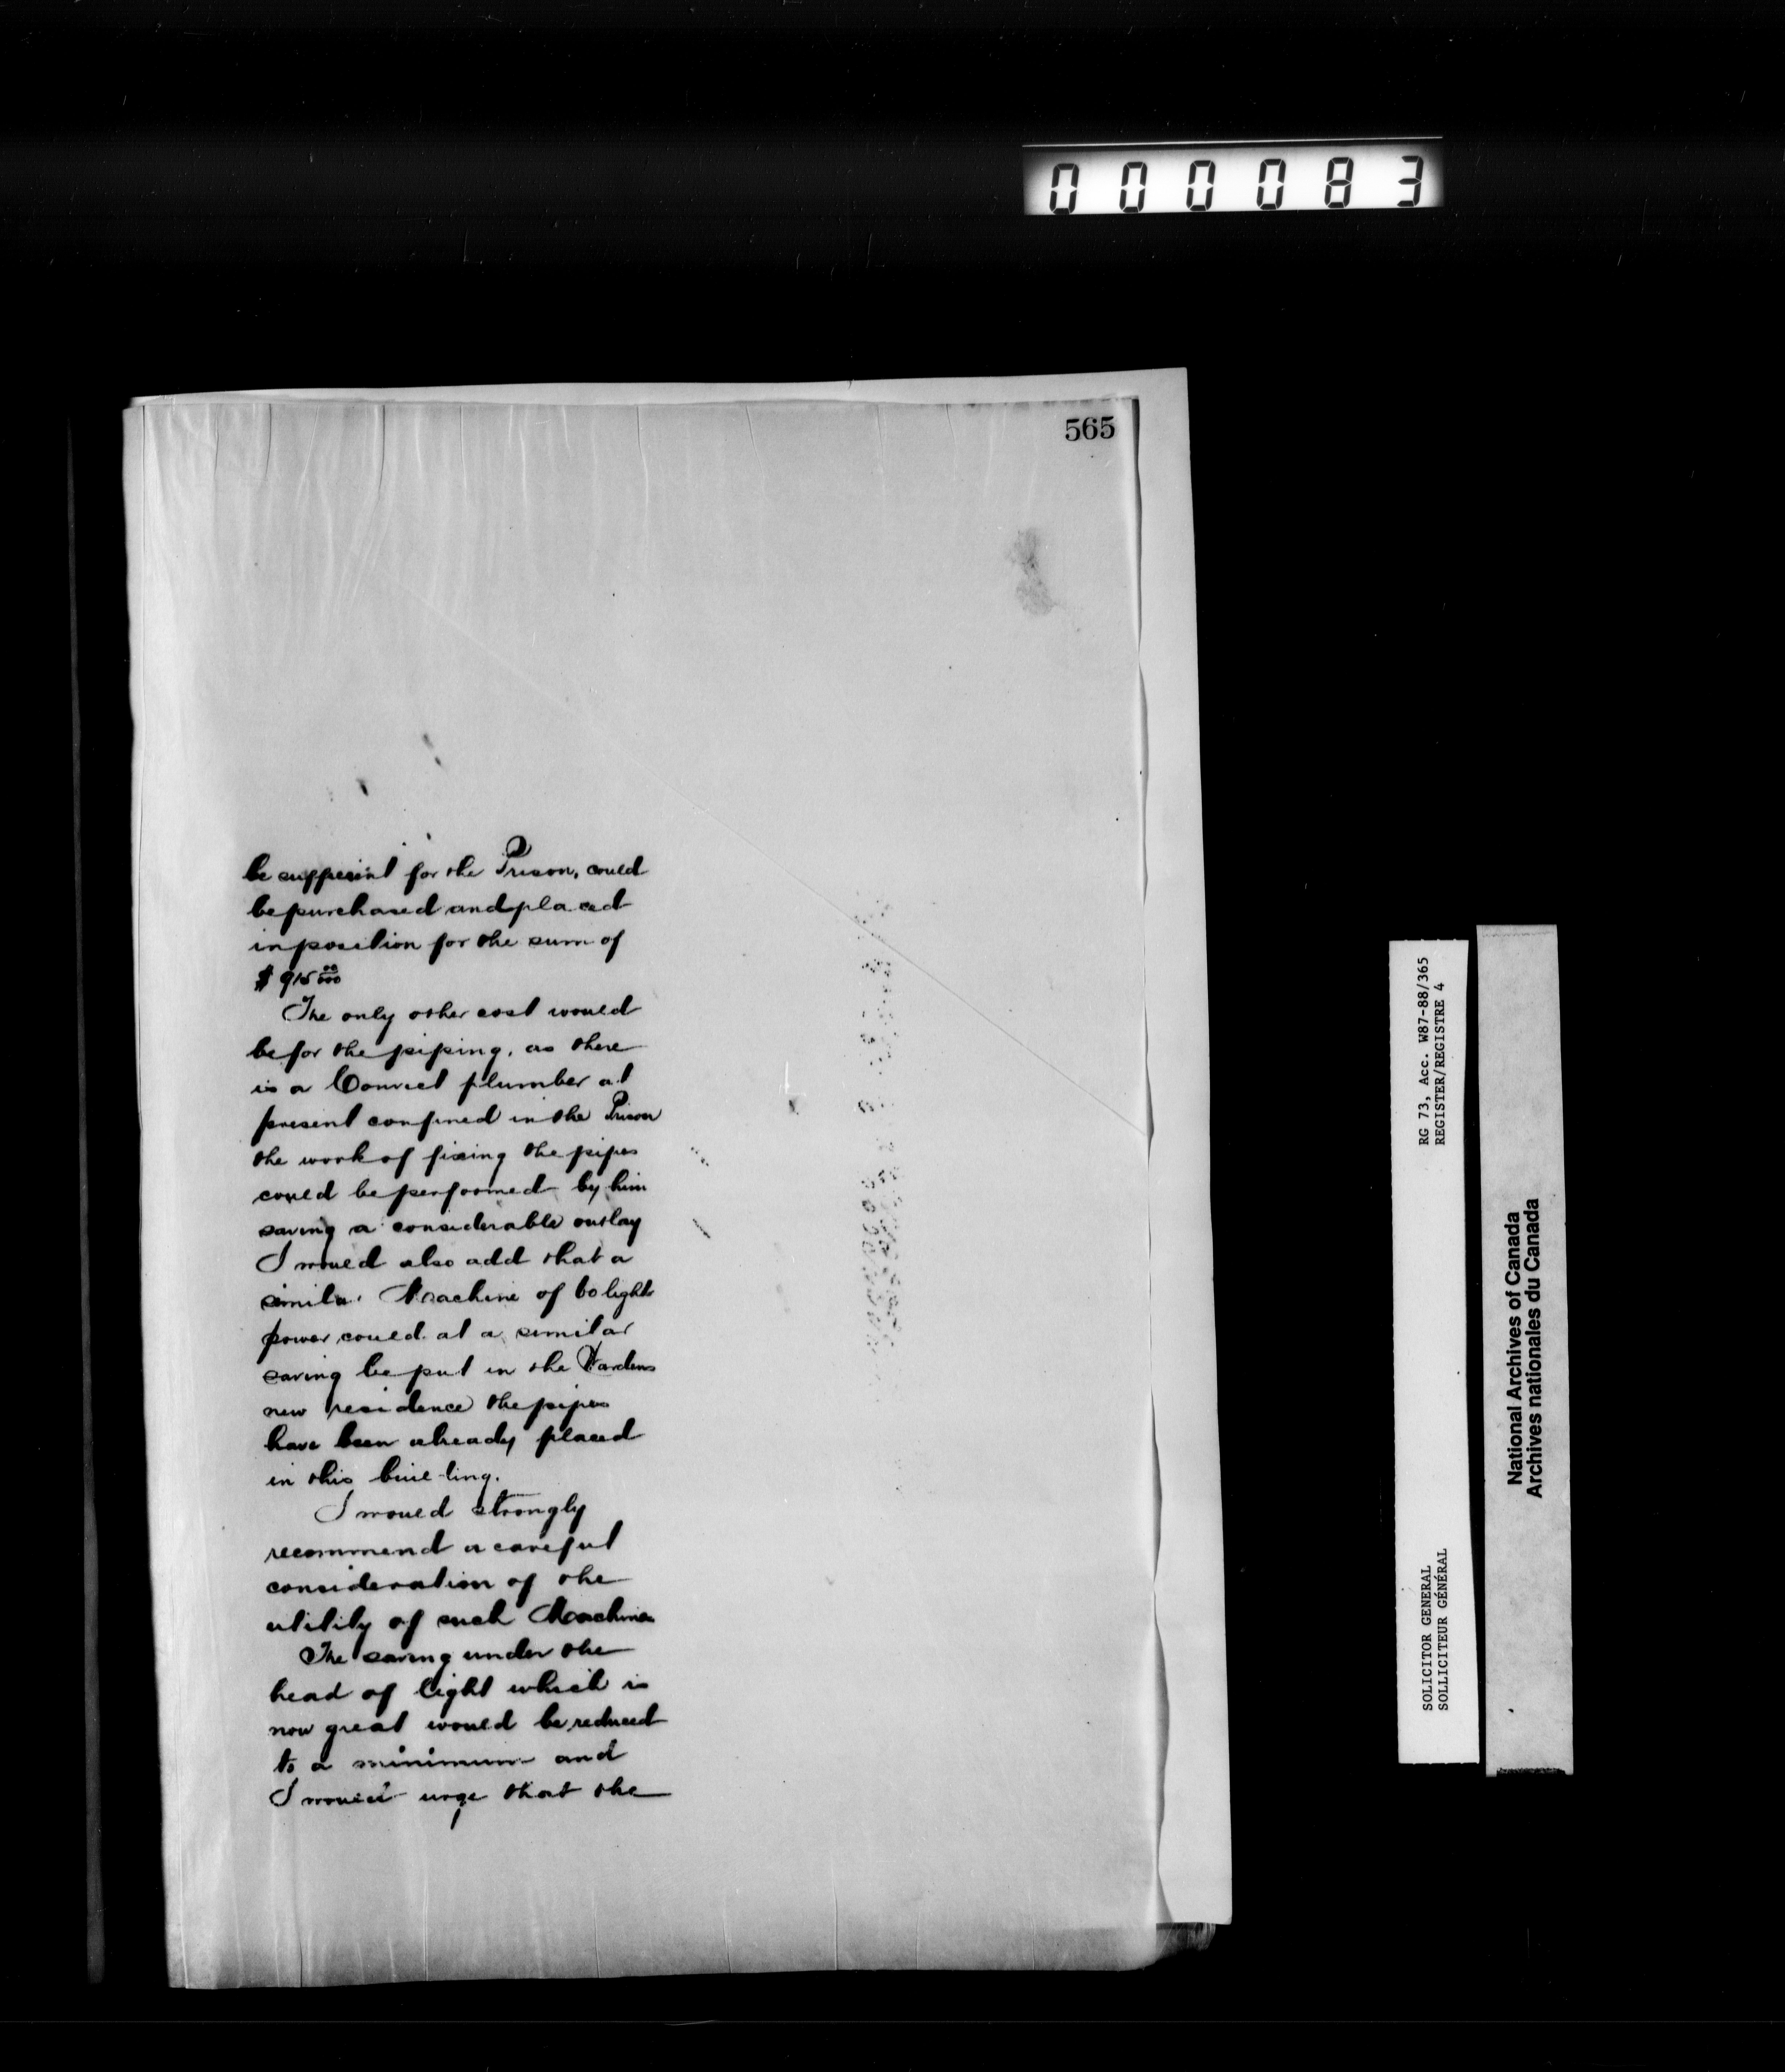 000083
565
be sufficient for the Prison, could
be purchased and placed
in position for the sum of
$ 915 00/000
The only other cost would
be for the piping, as there
is a Convict plumber at
present confined in the Prison
the work of fixing the pipes
could be performed by him
saving a considerable outlay
I would also add that a
similar Machine of 60 lights
power could at a similar
saving be put in the Wardens
new residence the pipes
have been already placed
in this building.
I would strongly
recommend a careful
consideration of the
utility of such Machines
The saving under the
head of light which is
now great would be reduced
to a minimum and
I would urge that the
RG 73, Acc. W87-88/365
REGISTER/REGISTRE 4
SOLICITOR GENERAL
SOLLICITEUR GÉNÉRAL
National Archives of Canada
Archives nationales du Canada